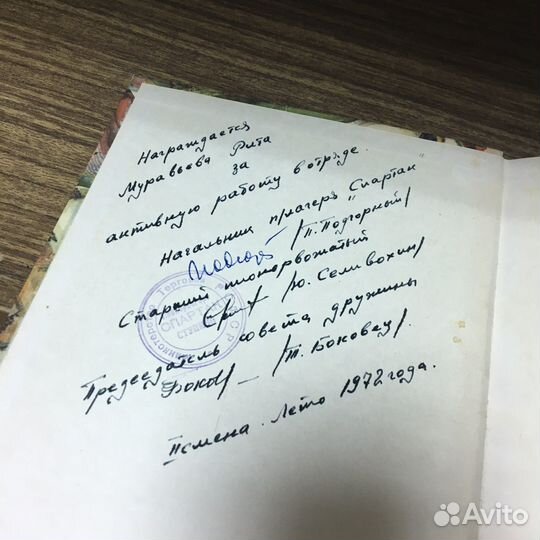 Награждается
Муравьева Рита
за
активную работу в отряде.
Начальник п/лагеря "Спартак"
/П. Подгорный/
Старший пионервожатый
/Ю. Селивохин/
Председатель совета дружины
/Т. Боковец/.
II смена. Лето 1972 года.
Министерство Торговли РСФСР
СПАРТАК
Avito